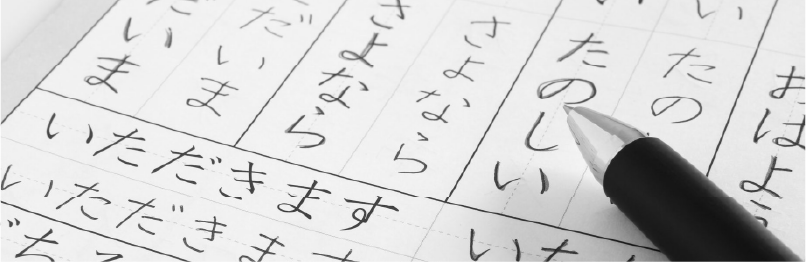 おはよ
い
たの
たのしい
さよなら
さよなら
だいま
だいま
いただきます
いただきます
ごち
いた